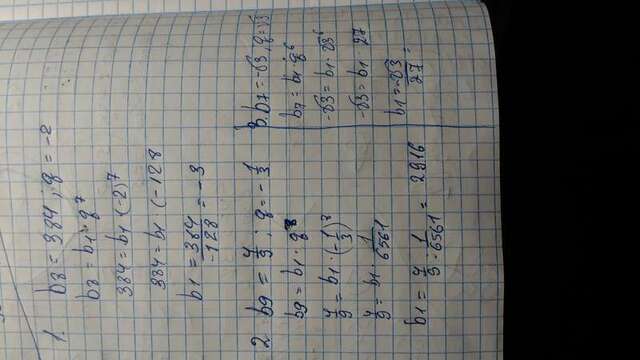 1. b8 = 384 ; q = -2
b8 = b1 · q^7
384 = b1 · (-2)^7
384 = b1 · (-128
b1 = 384/-128 = -3
2 b9 = 4/9 ; q = -1/3
b9 = b1 · q^8
4/9 = b1 · (-1/3)^8
4/9 = b1 · 1/6561
b1 = 4/9 : 1/6561 = 2916
3. b7 = -√3, q = √3
b7 = b1 · q^6
-√3 = b1 · √3^6
-√3 = b1 · 27
b1 = -√3/27 =